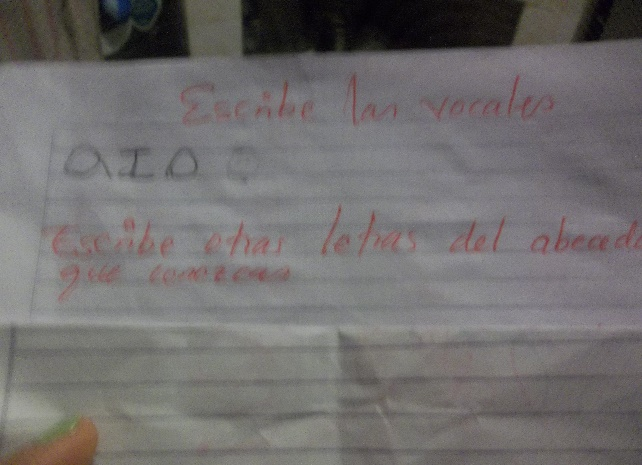 Escribe las vocales
a I O
Escribe otras letras del abeceda
que conozcas